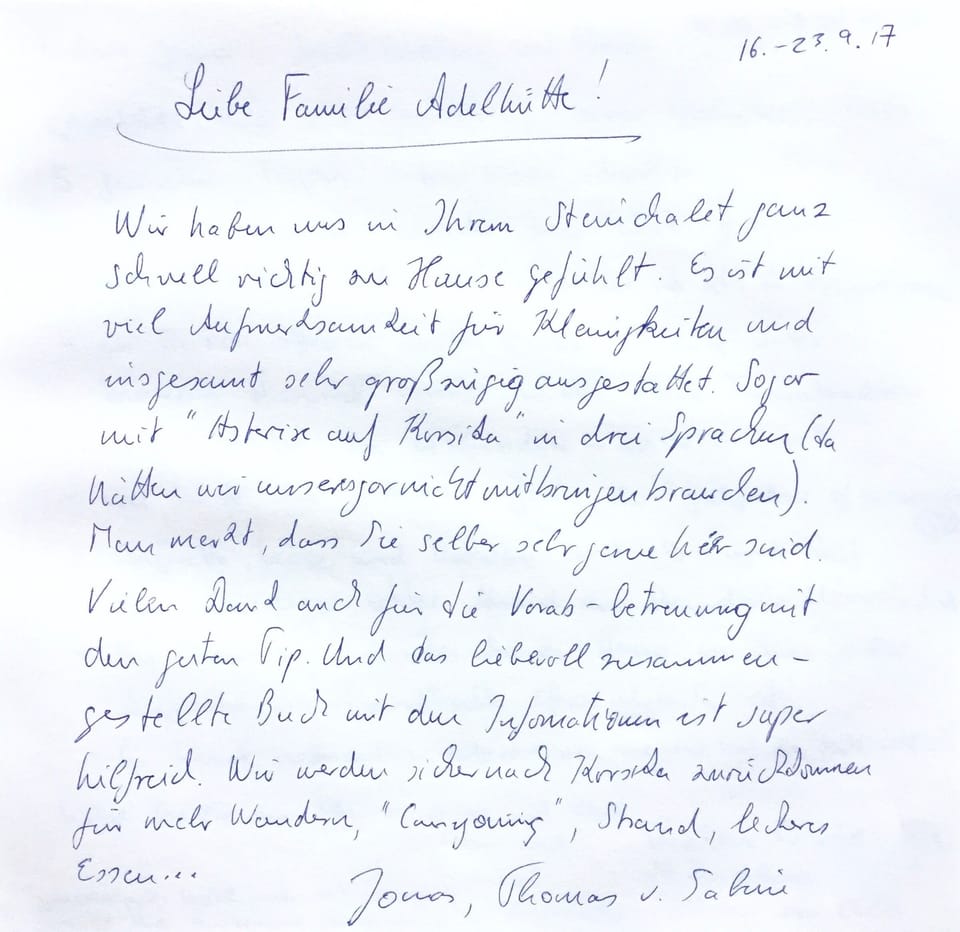 16.-23.9.17
Liebe Familie Adelhütte!
Wir haben uns in Ihrem Steinchalet ganz
schnell richtig zu Hause gefühlt. Es ist mit
viel Aufmerksamkeit für Kleinigkeiten und
insgesamt sehr großzügig ausgestattet. Sogar
mit "Asterix auf Korsika" in drei Sprachen (da
hätten wir unseres gar nicht mitbringen brauchen).
Man merkt, dass Sie selber sehr gerne hier sind.
Vielen Dank auch für die Vorab-betreuung mit
den guten Tip. Und das liebevoll zusammen-
gestellte Buch mit den Infomationen ist super
hilfreich. Wir werden sicher nach Korsika zurückkommen
für mehr Wandern, "Canyoning", Strand, leckeres
Essen...
Jonas, Thomas u. Sabine